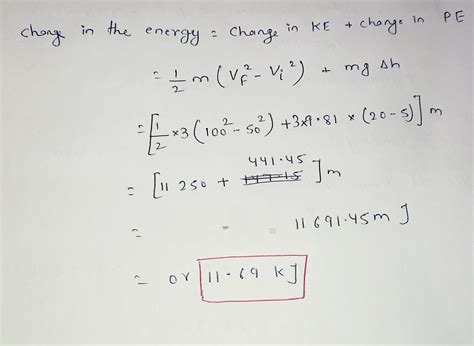 Change in the energy = Change in KE + change in PE
= 1/2 m (Vf² - Vi²) + mg Δh
= [1/2 ×3 (100² - 50²) + 3×9.81 × (20-5)] m
441.45
= [11 250 + ] m
= 11 691.45 m J
= or 11.69 kJ